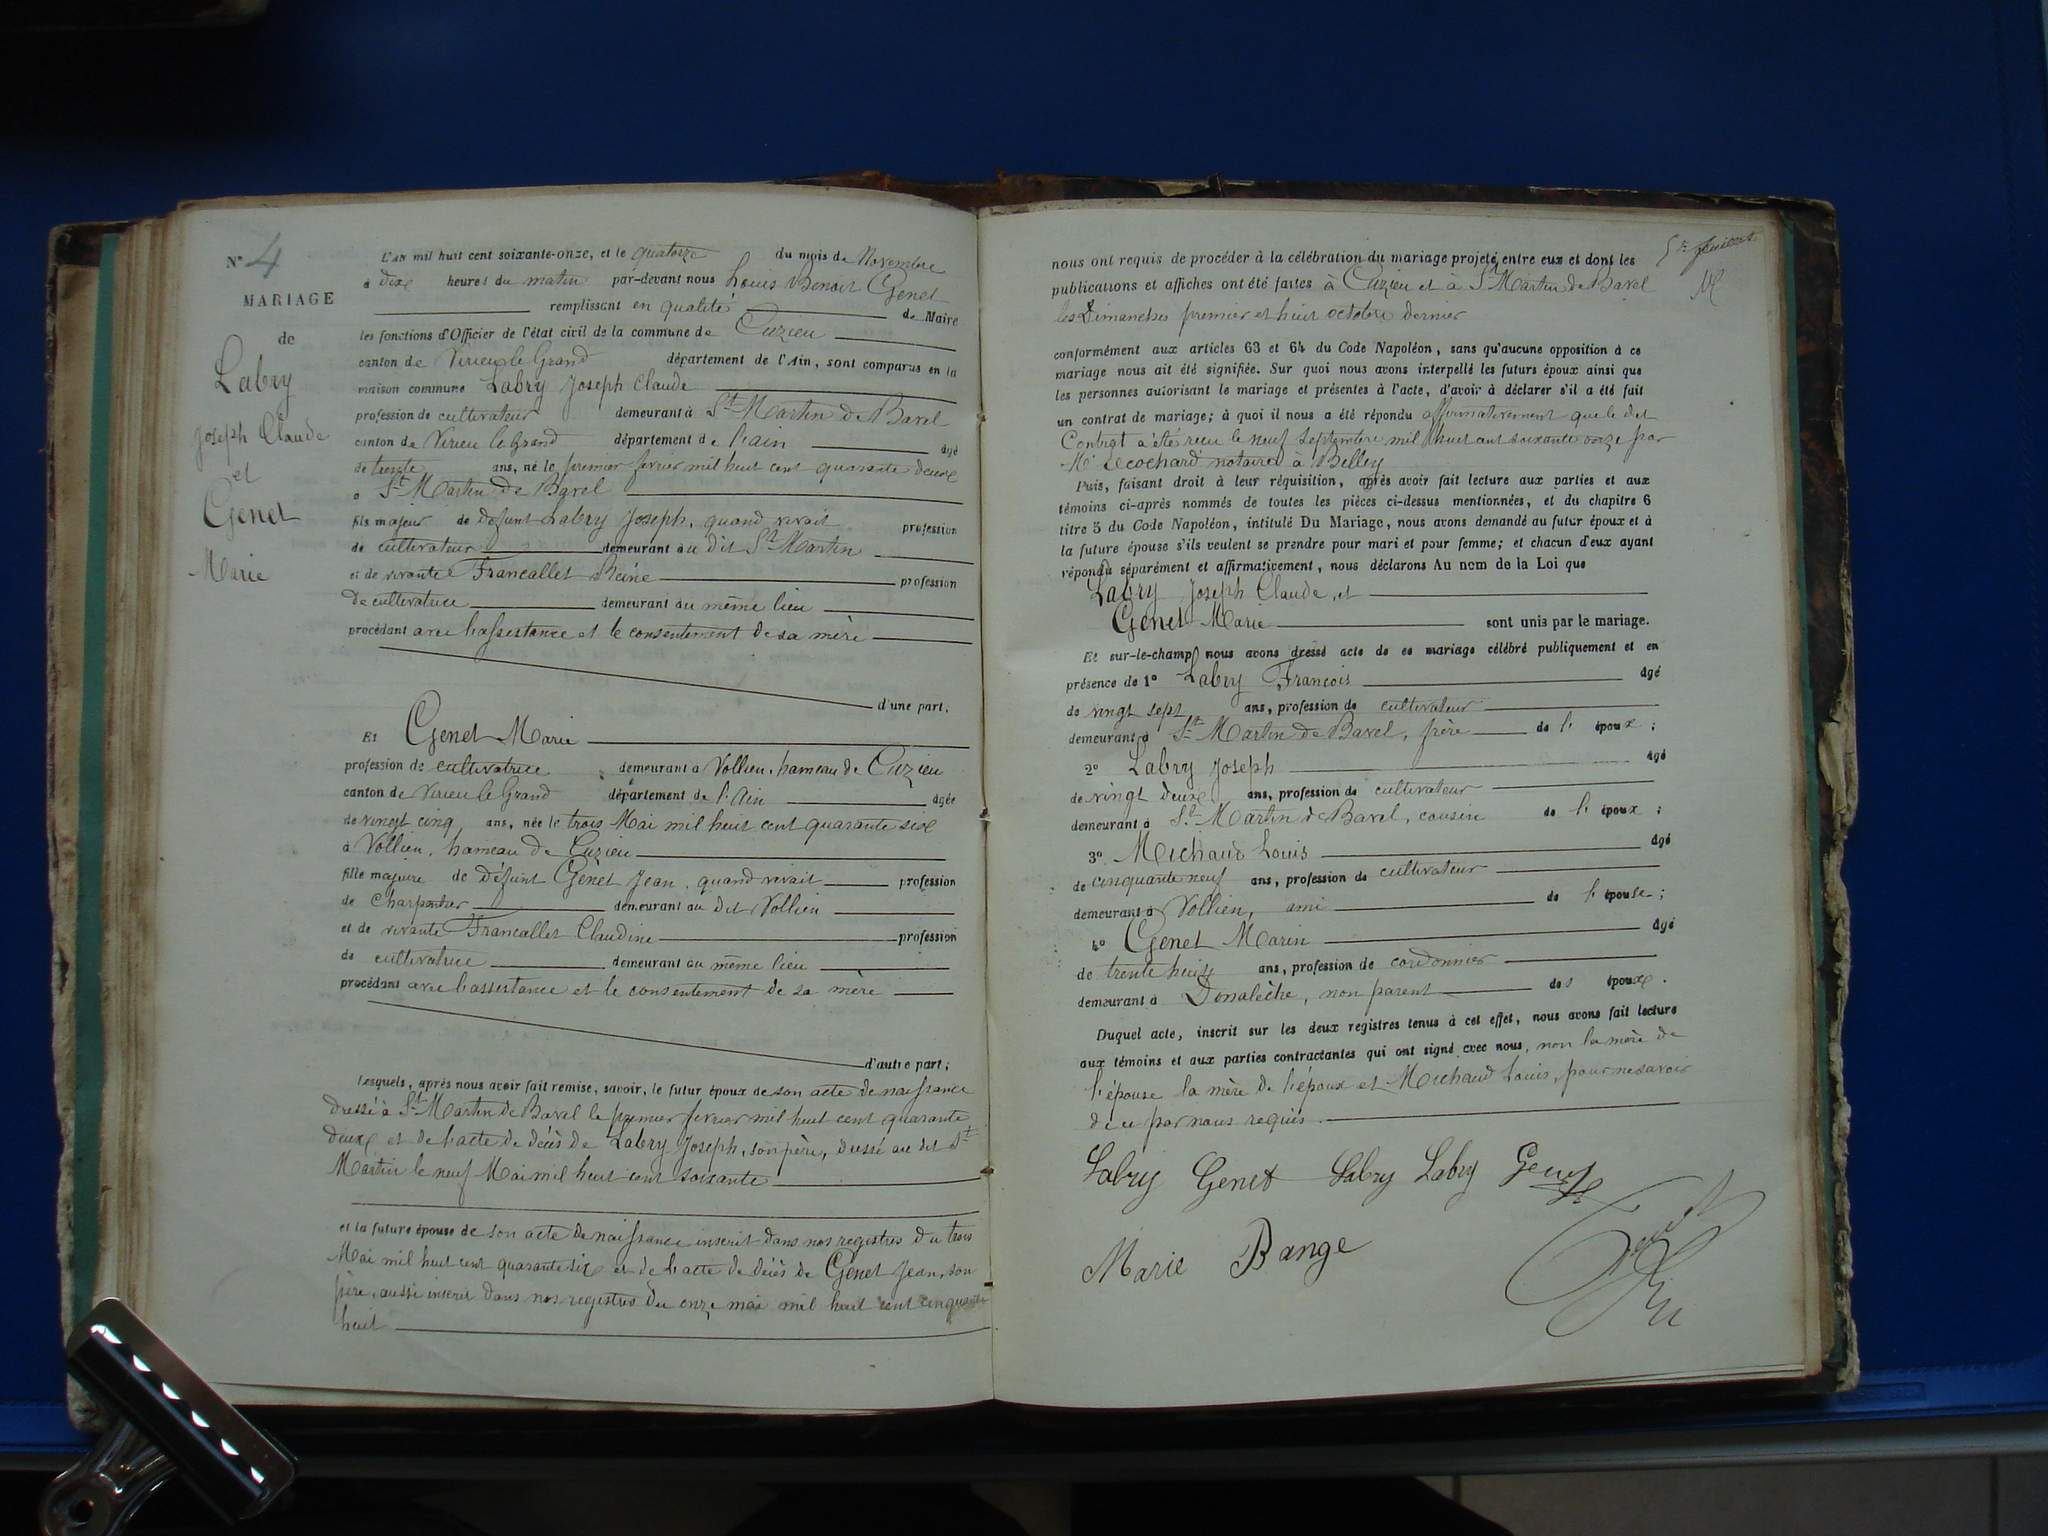 N° 4
MARIAGE
de
Labry
Joseph Claude
et
Genet
Marie
L'AN mil huit cent soixante-onze, et le quatorze du mois de Novembre
à dix heures du matin par-devant nous Louis Benoit Genet
remplissant en qualité de Maire
les fonctions d'Officier de l'état civil de la commune de Cuzieu
canton de Virieu le Grand département de l'Ain, sont comparus en la
maison commune Labry Joseph Claude
profession de cultivateur demeurant à St Martin de Bavel
canton de Virieu le Grand département de l'ain âgé
de trente ans, né le premier fevrier mil huit cent quarante deux
à St Martin de Bavel
fils majeur de défunt Labry Joseph, quand vivait profession
de cultivateur demeurant au dit St Martin
et de vivante Francallet Reine profession
de cultivatrice demeurant au même lieu
procédant avec l'assistance et le consentement de sa mère
d'une part;
Et Genet Marie
profession de cultivatrice demeurant à Vollien, hameau de Cuzieu
canton de Virieu le Grand département de l'Ain âgée
de vingt cinq ans, née le trois Mai mil huit cent quarante six
à Vollien, hameau de Cuzieu
fille majeure de défunt Genet Jean, quand vivait profession
de charpentier demeurant au dit Vollien
et de vivante Francallet Claudine profession
de cultivatrice demeurant au même lieu
procédant avec l'assistance et le consentement de sa mère
d'autre part;
Lesquels, après nous avoir fait remise, savoir, le futur époux de son acte de naissance
dressé à St Martin de Bavel le premier fevrier mil huit cent quarante
deux et de l'acte de décès de Labry Joseph, son père, dressé au dit St
Martin le neuf Mai mil huit cent soixante
et la future épouse de son acte de naissance inscrit dans nos registres du trois
Mai mil huit cent quarante six et de l'acte de décès de Genet Jean, son
père, aussi inscrit dans nos registres du onze mai mil huit cent cinquante
huit
nous ont requis de procéder à la célébration du mariage projeté entre eux et dont les
publications et affiches ont été faites à Cuzieu et à St Martin de Bavel
les Dimanches premier et huit octobre dernier
conformément aux articles 63 et 64 du Code Napoléon, sans qu'aucune opposition à ce
mariage nous ait été signifiée. Sur quoi nous avons interpellé les futurs époux ainsi que
les personnes autorisant le mariage et présentes à l'acte, d'avoir à déclarer s'il a été fait
un contrat de mariage; à quoi il nous a été répondu affirmativement que le dit
Contrat a été recu le neuf Septembre mil huit cent soixante onze par
Me Lecochard notaire à Belley
Puis, faisant droit à leur réquisition, après avoir fait lecture aux parties et aux
témoins ci-après nommés de toutes les pièces ci-dessus mentionnées, et du chapitre 6
titre 5 du Code Napoléon, intitulé Du Mariage, nous avons demandé au futur époux et à
la future épouse s'ils veulent se prendre pour mari et pour femme; et chacun d'eux ayant
répondu séparément et affirmativement, nous déclarons Au nom de la Loi que
Labry Joseph Claude, et
Genet Marie sont unis par le mariage.
Et sur-le-champ nous avons dressé acte de ce mariage célébré publiquement et en
présence de 1° Labry Francois âgé
de vingt sept ans, profession de cultivateur
demeurant à St Martin de Bavel, frère de l' époux;
2° Labry Joseph âgé
de vingt deux ans, profession de cultivateur
demeurant à St Martin de Bavel, cousin de l' époux;
3° Michaud Louis âgé
de cinquante neuf ans, profession de cultivateur
demeurant à Vollien, ami de l' épouse;
4° Genet Marin âgé
de trente huit ans, profession de cordonnier
demeurant à non parent des époux.
Duquel acte, inscrit sur les deux registres tenus à cet effet, nous avons fait lecture
aux témoins et aux parties contractantes qui ont signé avec nous, non la mère de
l'épouse la mère de l'époux et Michaud Louis, pour ne savoir
de ce par nous requis.
Labry Genet Labry Labry Genet
Marie Bange